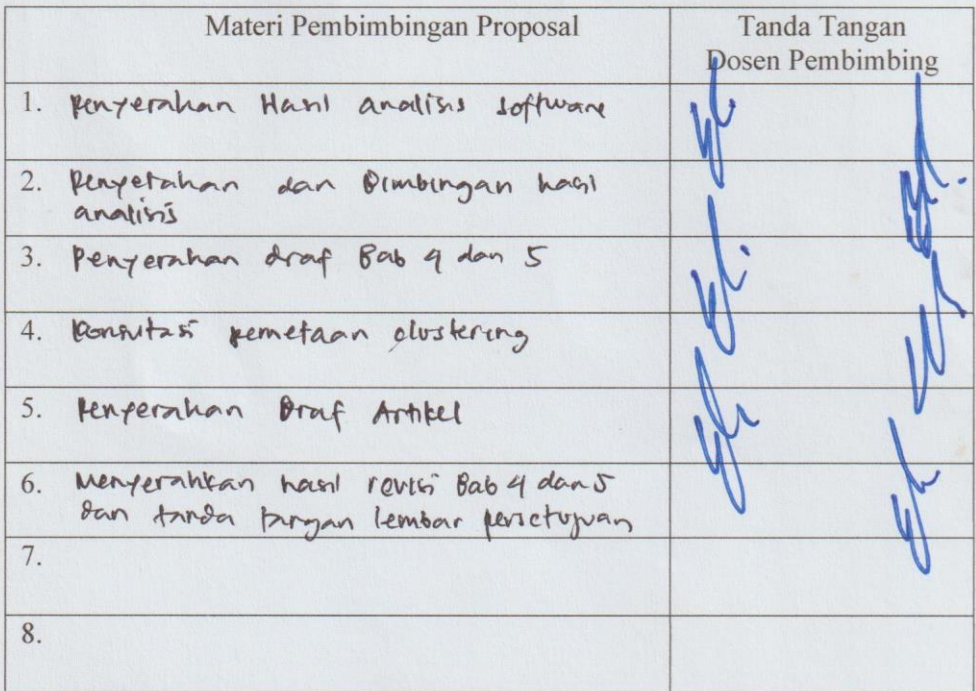 Materi Pembimbingan Proposal
Tanda Tangan
Dosen Pembimbing
1. Penyerahan Hasil analisis software
2. Penyerahan dan Bimbingan hasil
analisis
3. Penyerahan draf Bab 4 dan 5
4. Konsultasi pemetaan clustering
5. Penyerahan Draf Artikel
6. Menyerahkan hasil revisi Bab 4 dan 5
dan tanda tangan lembar persetujuan
7.
8.